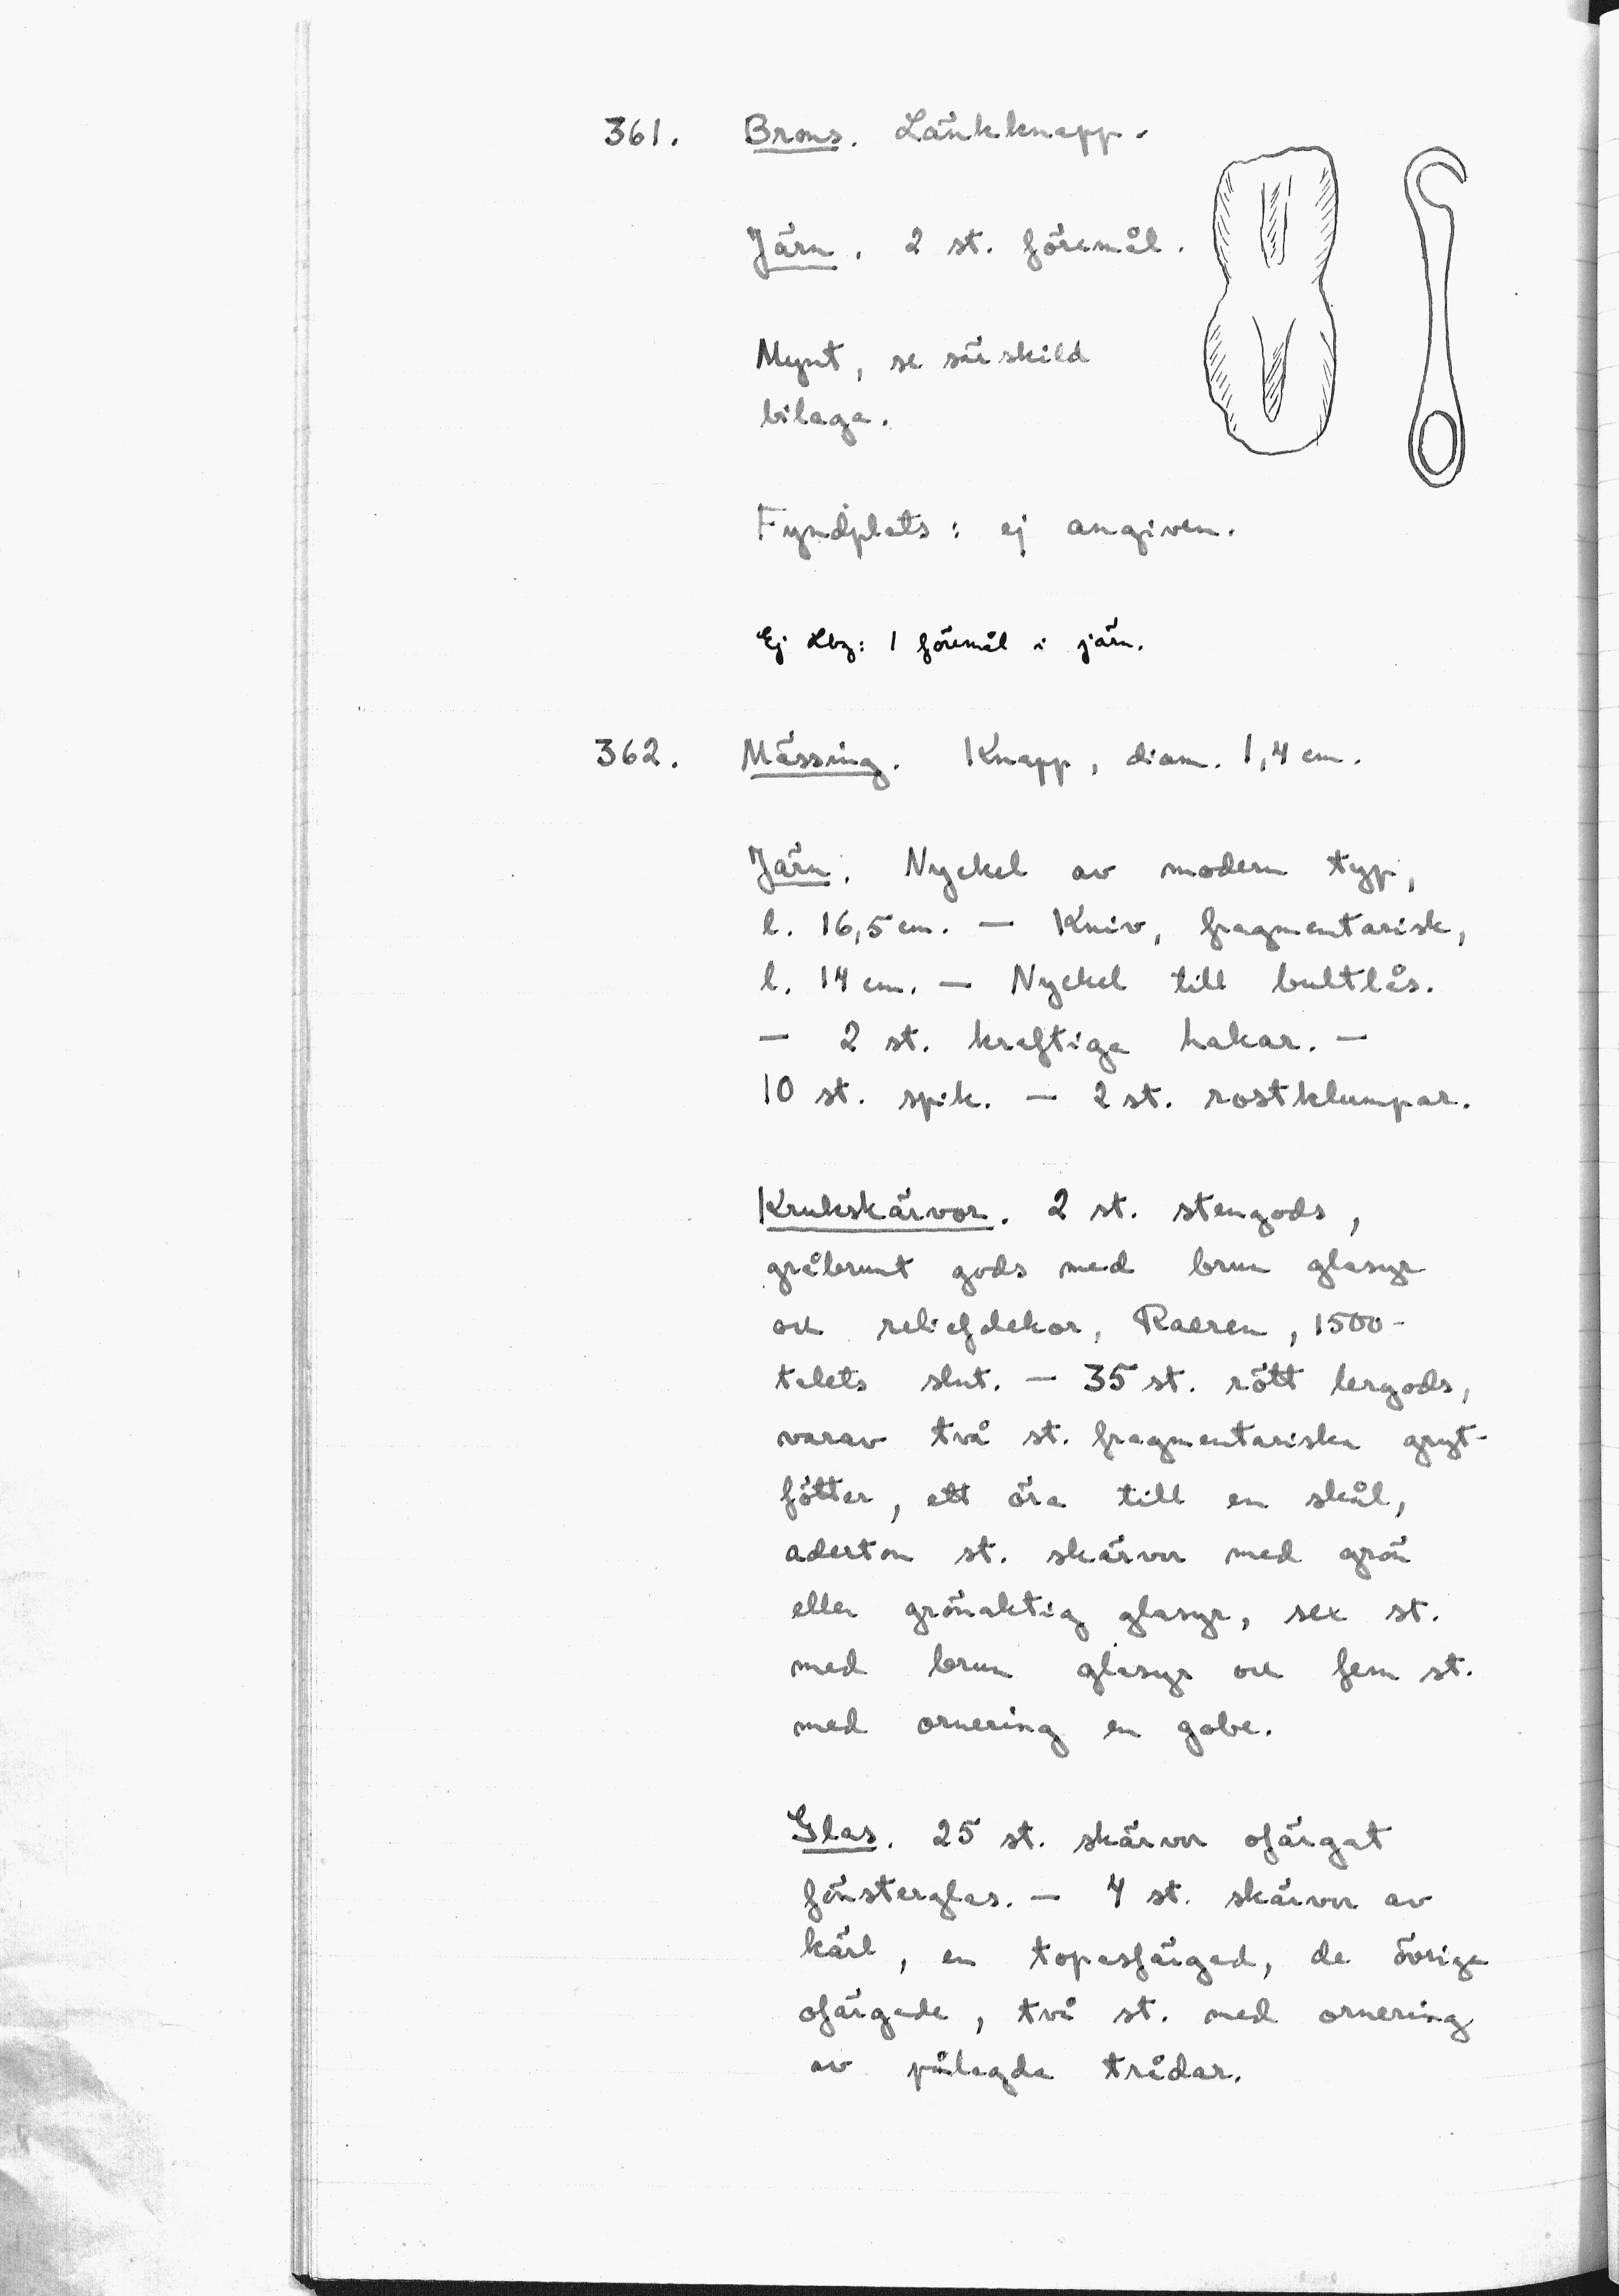 361. Brons. Länkknapp.
Järn. 2 st. föremål.
Mynt, se särskild
bilaga.
Fyndplats: ej angiven.
Ej Lbg: 1 föremål i järn.
362. Mässing. Knapp, diam. 1,4 cm.
Järn. Nyckel av modern typ,
l. 16,5 cm. — Kniv, fragmentarisk,
l. 14 cm. — Nyckel till bultlås.
— 2 st. kraftiga hakar. —
10 st. spik. — 2 st. rostklumpar.
Krukskärvor. 2 st. stengods,
gråbrunt gods med brun glasyr
och reliefdekor, Raeren, 1500-
talets slut. — 35 st. rött lergods,
varav två st. fragmentariska gryt-
fötter, ett öra till en skål,
aderton st. skärvor med grön
eller grönaktig glasyr, sex st.
med brun glasyr och fem st.
med ornering en gobe.
Glas. 25 st. skärvor ofärgat
fönsterglas. — 4 st. skärvor av
kärl, en topasfärgad, de övriga
ofärgade, två st. med ornering
av pålagda trådar.